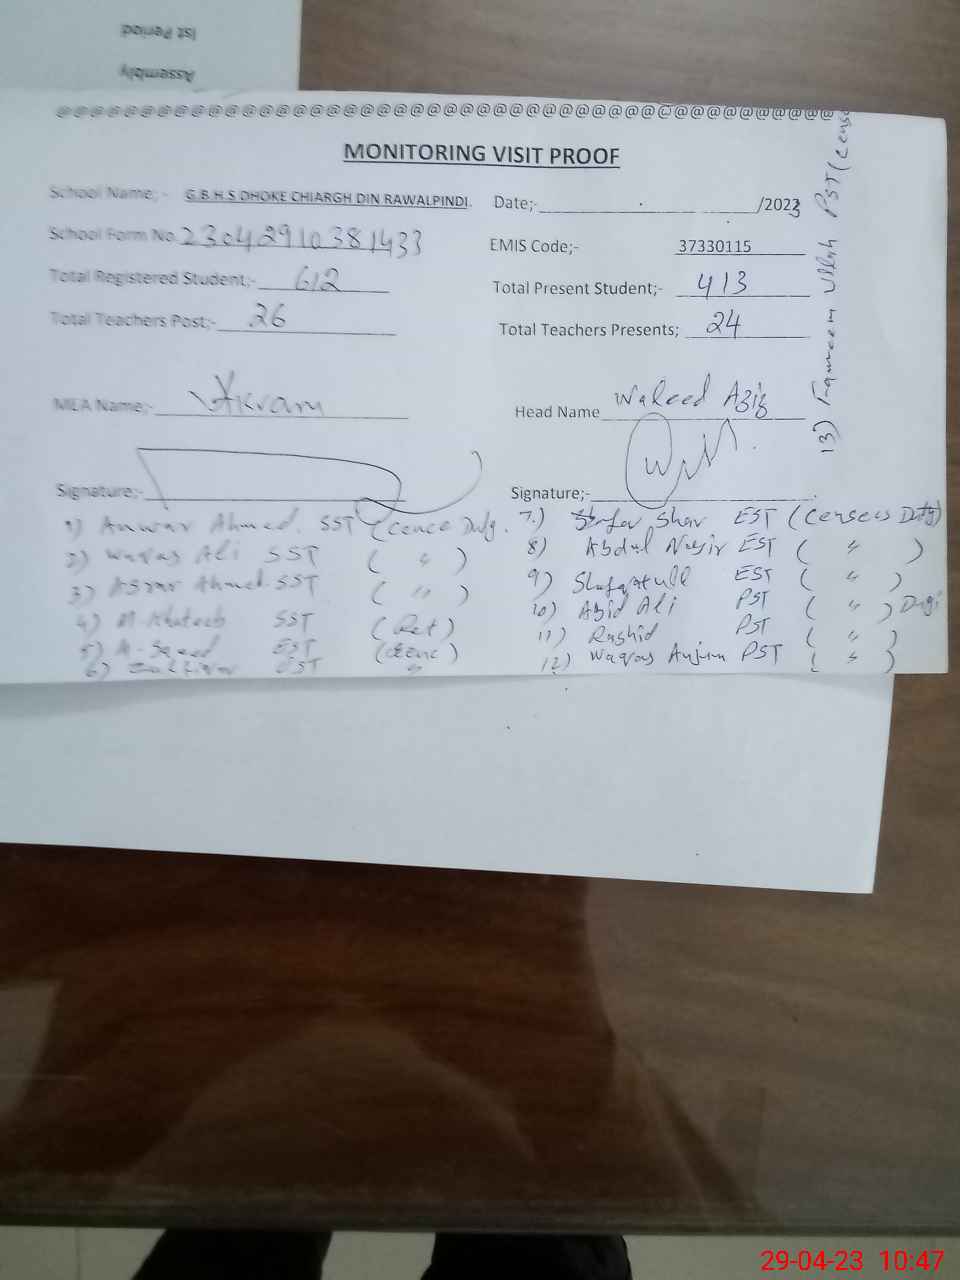 Ist Period
Assembly
@@@@@@@@@@@@@@@@@@@@@@@@@@@@@@@@@@@@@@@@@@@@@@@@
MONITORING VISIT PROOF
School Name;- G.B.H.S DHOKE CHIARGH DIN RAWALPINDI. Date;- /2023
School Form No. 23042910381433 EMIS Code;- 37330115
Total Registered Student;- 612 Total Present Student;- 413
Total Teachers Post;- 26 Total Teachers Presents; 24
MEA Name;- Akram Head Name Waleed Aziz
Signature;- Signature;-
1) Anwar Ahmed. SST (Cence Duty.
2) Waqas Ali SST ( " )
3) Asrar Ahmed. SST ( " )
4) M. Khateeb SST (Ret)
5) A. Saeed EST (Cenc)
6) EST "
7.) Shar EST (Censers Duty)
8) Abdul Nasir EST ( " )
9) EST ( " )
10) Abid Ali PST ( " ) Duty
11) Rashid PST ( " )
12) Waqas Anjum PST ( " )
13) Ullah PST (Cens
29-04-23 10:47